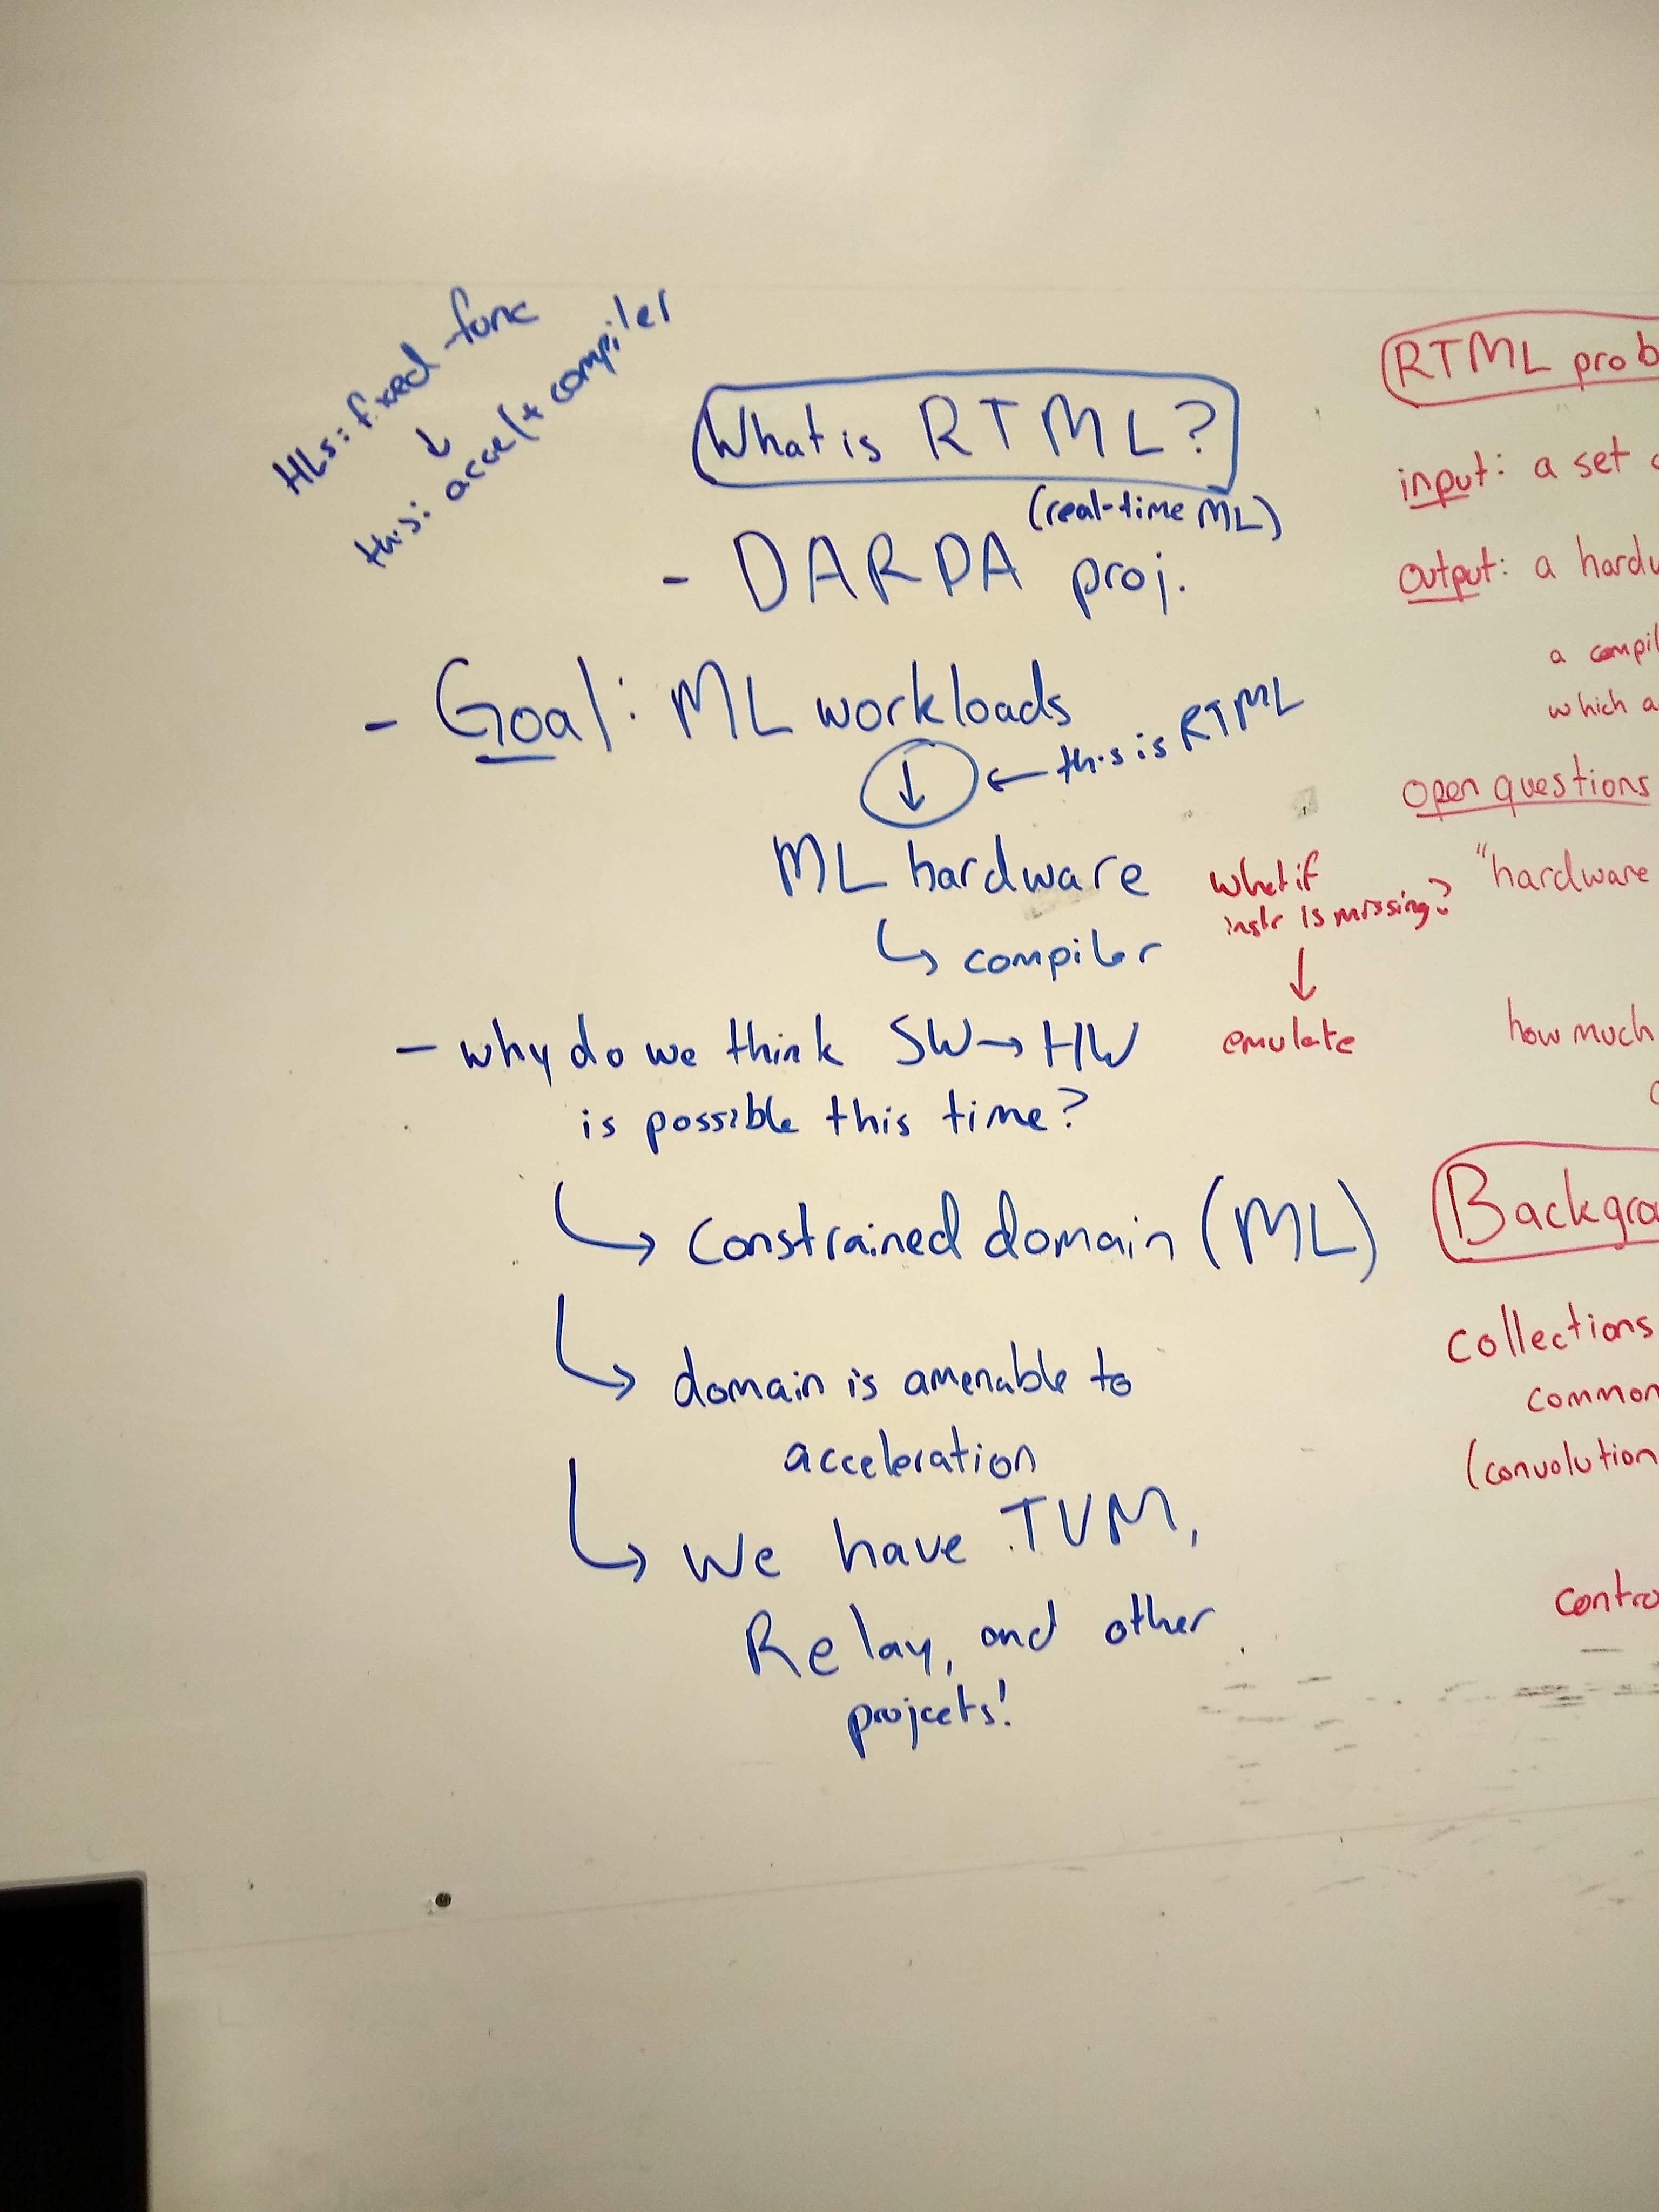 HLS: fixed-func
↓
this: accel + compiler
What is RTML?
(real-time ML)
- DARPA proj.
- Goal: ML workloads
↓ ← this is RTML
ML hardware
↳ compiler
- why do we think SW→HW
is possible this time?
↳ Constrained domain (ML)
↳ domain is amenable to
acceleration
↳ We have TVM,
Relay, and other
projects!
what if
instr is missing?
↓
emulate
RTML prob
input: a set
output: a hardw
a compil
which a
open questions
"hardware
how much
Backgro
collections
common
(convolution
contro